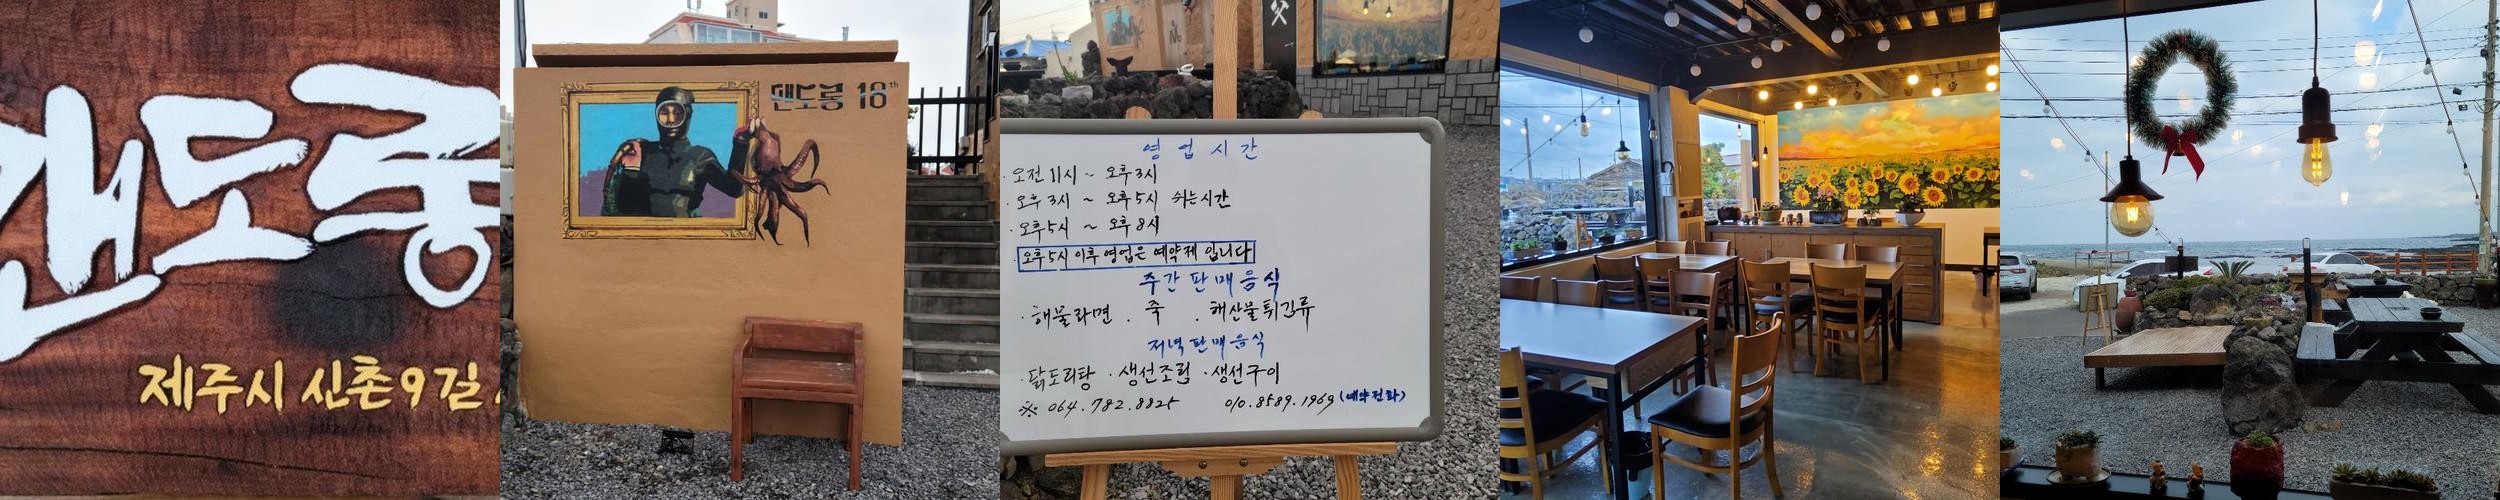 맨도롱
제주시 신촌9길
맨도롱 18th
영업시간
· 오전 11시 ~ 오후 3시
· 오후 3시 ~ 오후 5시 쉬는시간
· 오후 5시 ~ 오후 8시
· 오후 5시 이후 영업은 예약제 입니다
주간 판매음식
· 해물라면 · 죽 · 해산물튀김류
저녁판매음식
· 닭도리탕 · 생선조림 · 생선구이
※ 064.782.8825 010.8589.1969 (예약전화)